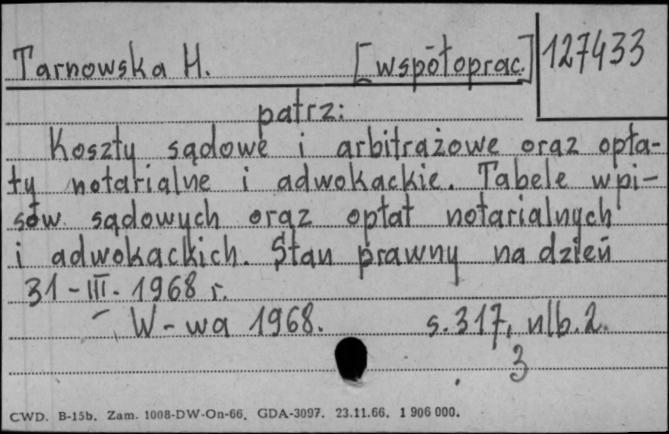 Tarnowska H. [współoprac.] 127433
patrz:
Koszty sądowe i arbitrażowe oraz opła-
ty notarialne i adwokackie. Tabele wpi-
sów sądowych oraz opłat notarialnych
i adwokackich. Stan prawny na dzień
31-III-1968 r.
W-wa 1968. s. 317, nlb. 2.
3
CWD. B-15b. Zam. 1008-DW-On-66. GDA-3097. 23.11.66. 1 906 000.